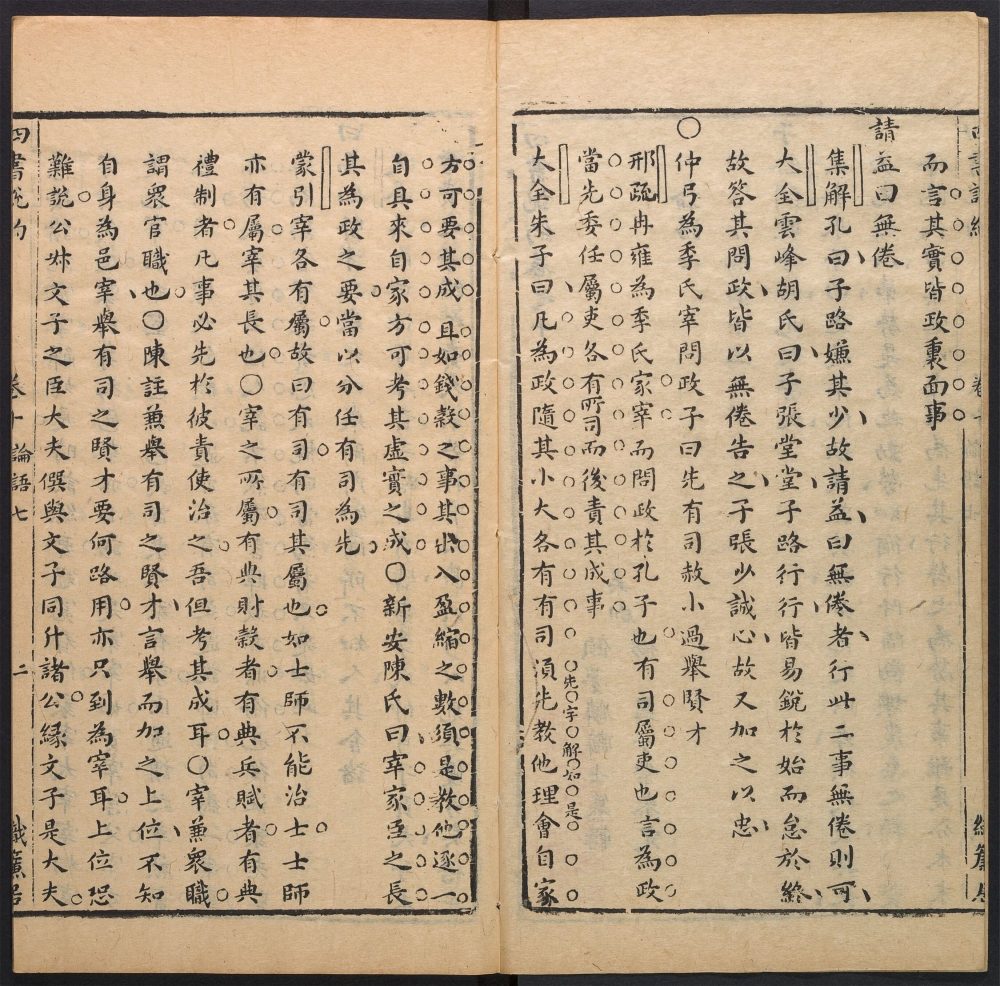 而言其實皆政裏面事
請益曰無倦
集解孔曰子路嫌其少故請益曰無倦者行此二事無倦則可
大全雲峰胡氏曰子張堂堂子路行行皆易銳於始而怠於終
故答其問政皆以無倦告之子張少誠心故又加之以忠
○仲弓為季氏宰問政子曰先有司赦小過舉賢才
邢疏冉雍為季氏家宰而問政於孔子也有司屬吏也言為政
當先委任屬吏各有所司而後責其成事 先字解如是
大全朱子曰凡為政隨其小大各有有司須先教他理會自家
方可要其成且如錢穀之事其出入盈縮之數須是教他逐一
自具來自家方可考其虛實之成○新安陳氏曰宰家臣之長
其為政之要當以分任有司為先
蒙引宰各有屬故曰有司有司其屬也如士師不能治士士師
亦有屬宰其長也○宰之所屬有典財穀者有典兵賦者有典
禮制者凡事必先於彼責使治之吾但考其成耳○宰兼眾職
謂眾官職也○陳註兼舉有司之賢才言舉而加之上位不知
自身為邑宰舉有司之賢才要何路用亦只到為宰耳上位恐
難說公叔文子之臣大夫僎與文子同升諸公緣文子是大夫
四書說約 卷十論語七 二 織簾居